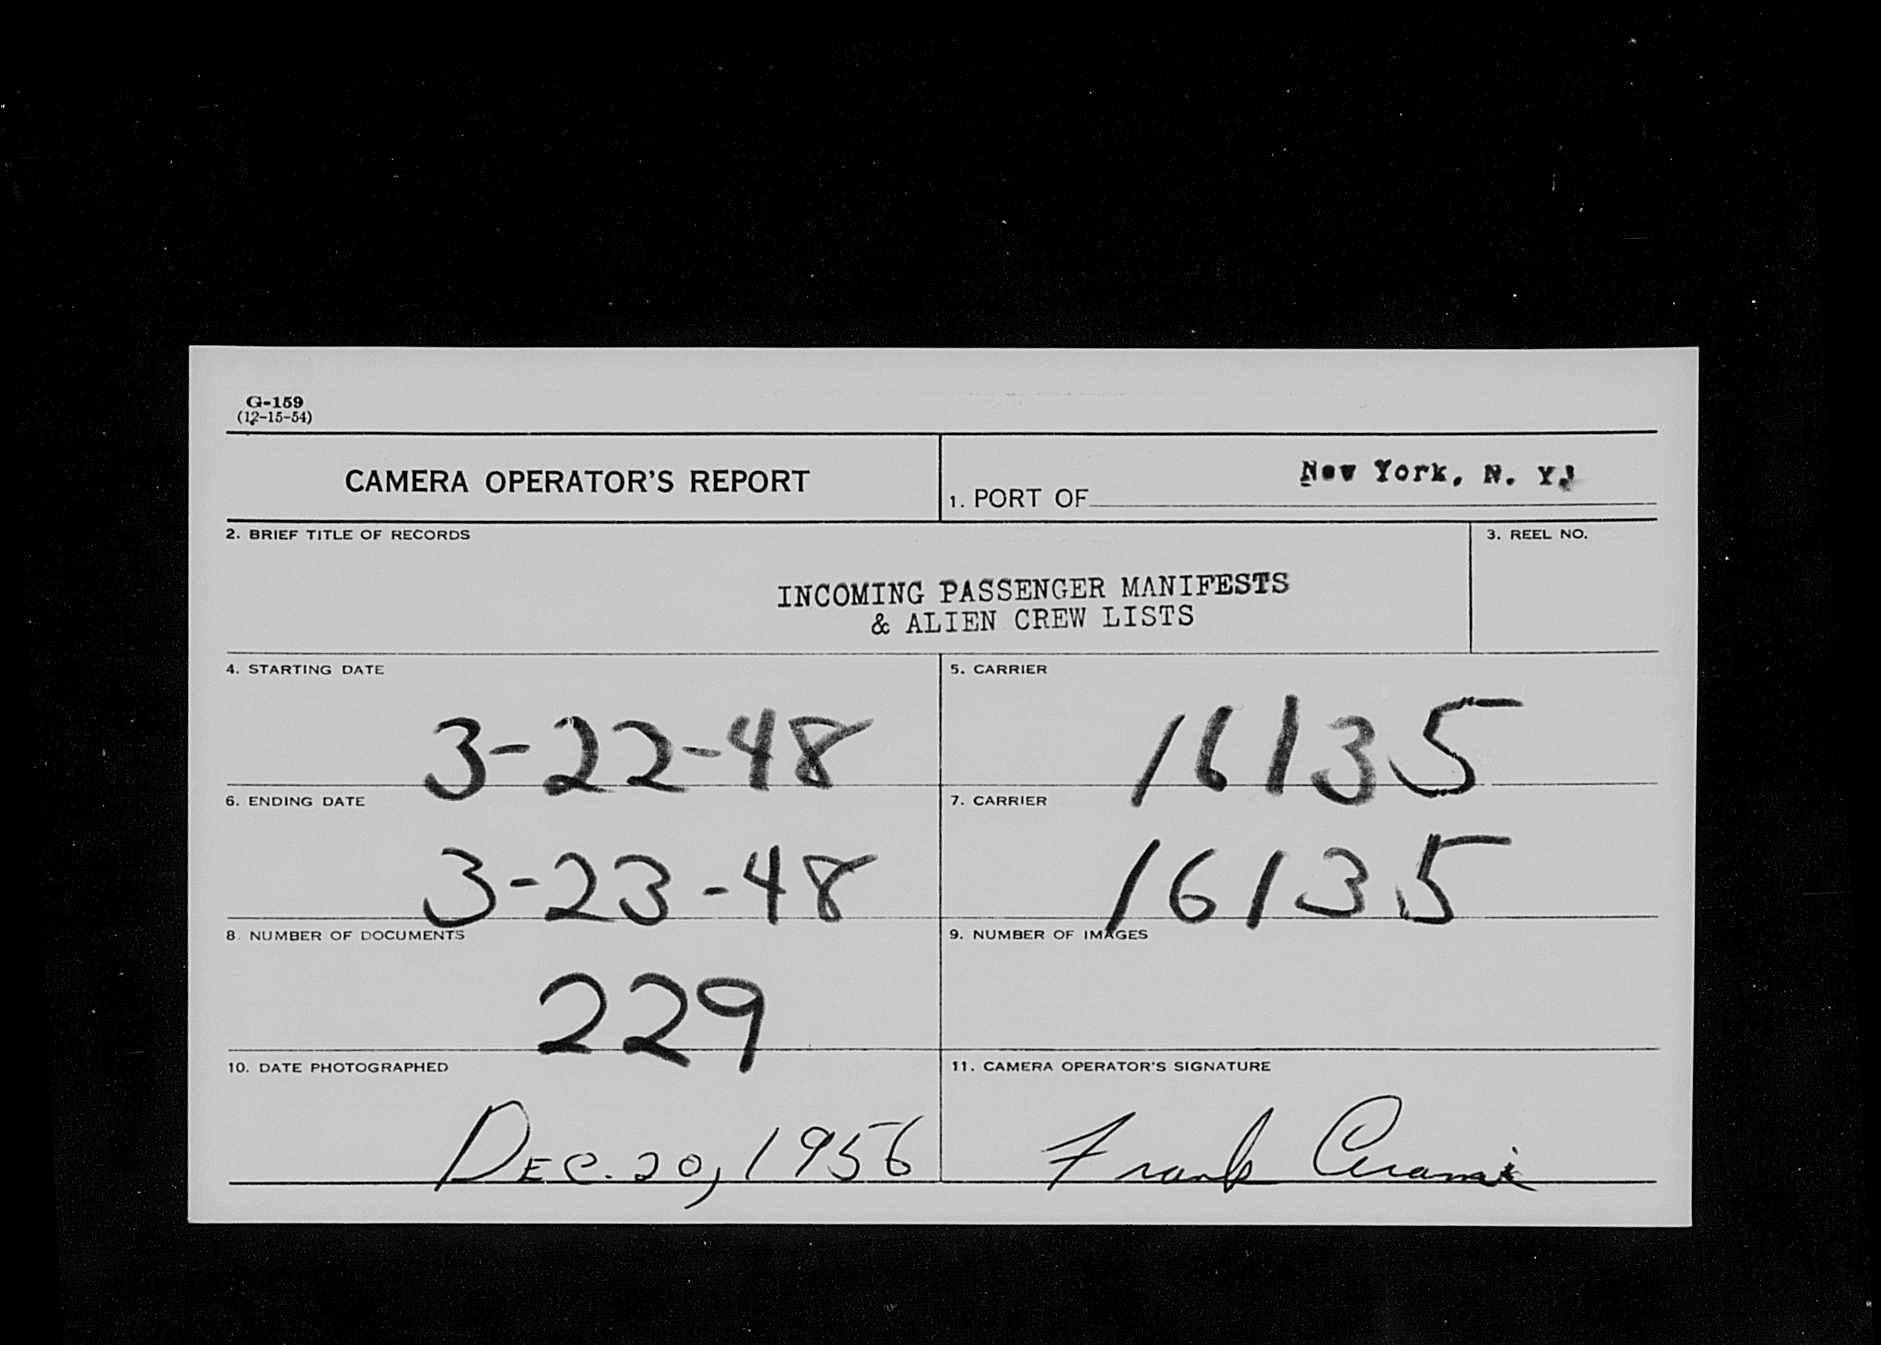 G-159
(12-15-54)
CAMERA OPERATOR'S REPORT
1. PORT OF New York, N. Y.
2. BRIEF TITLE OF RECORDS
INCOMING PASSENGER MANIFESTS
& ALIEN CREW LISTS
3. REEL NO.
4. STARTING DATE
3-22-48
5. CARRIER
16135
6. ENDING DATE
3-23-48
7. CARRIER
16135
8. NUMBER OF DOCUMENTS
229
9. NUMBER OF IMAGES
10. DATE PHOTOGRAPHED
DEC. 20, 1956
11. CAMERA OPERATOR'S SIGNATURE
Frank Cerami